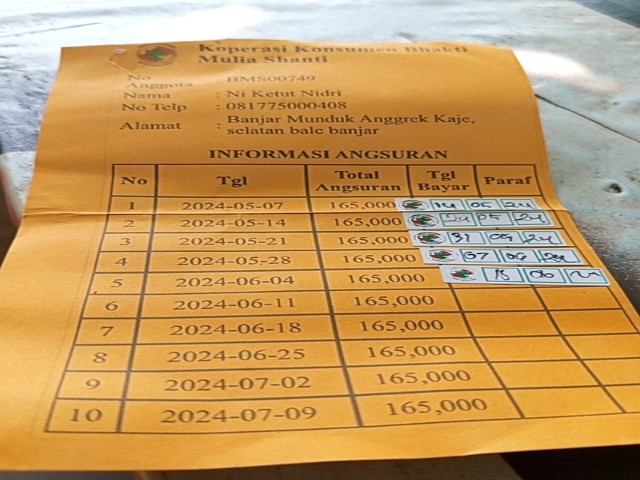 Koperasi Konsumen Bhakti
Mulia Shanti
No
Anggota : BMS00749
Nama : Ni Ketut Nidri
No Telp : 081775000408
Alamat : Banjar Munduk Anggrek Kaje,
selatan bale banjar
INFORMASI ANGSURAN
No Tgl Total Angsuran Tgl Bayar Paraf
1 2024-05-07 165,000 14 05 24
2 2024-05-14 165,000 05 24
3 2024-05-21 165,000 31 05 24
4 2024-05-28 165,000 07 06 24
5 2024-06-04 165,000 15 06
6 2024-06-11 165,000
7 2024-06-18 165,000
8 2024-06-25 165,000
9 2024-07-02 165,000
10 2024-07-09 165,000